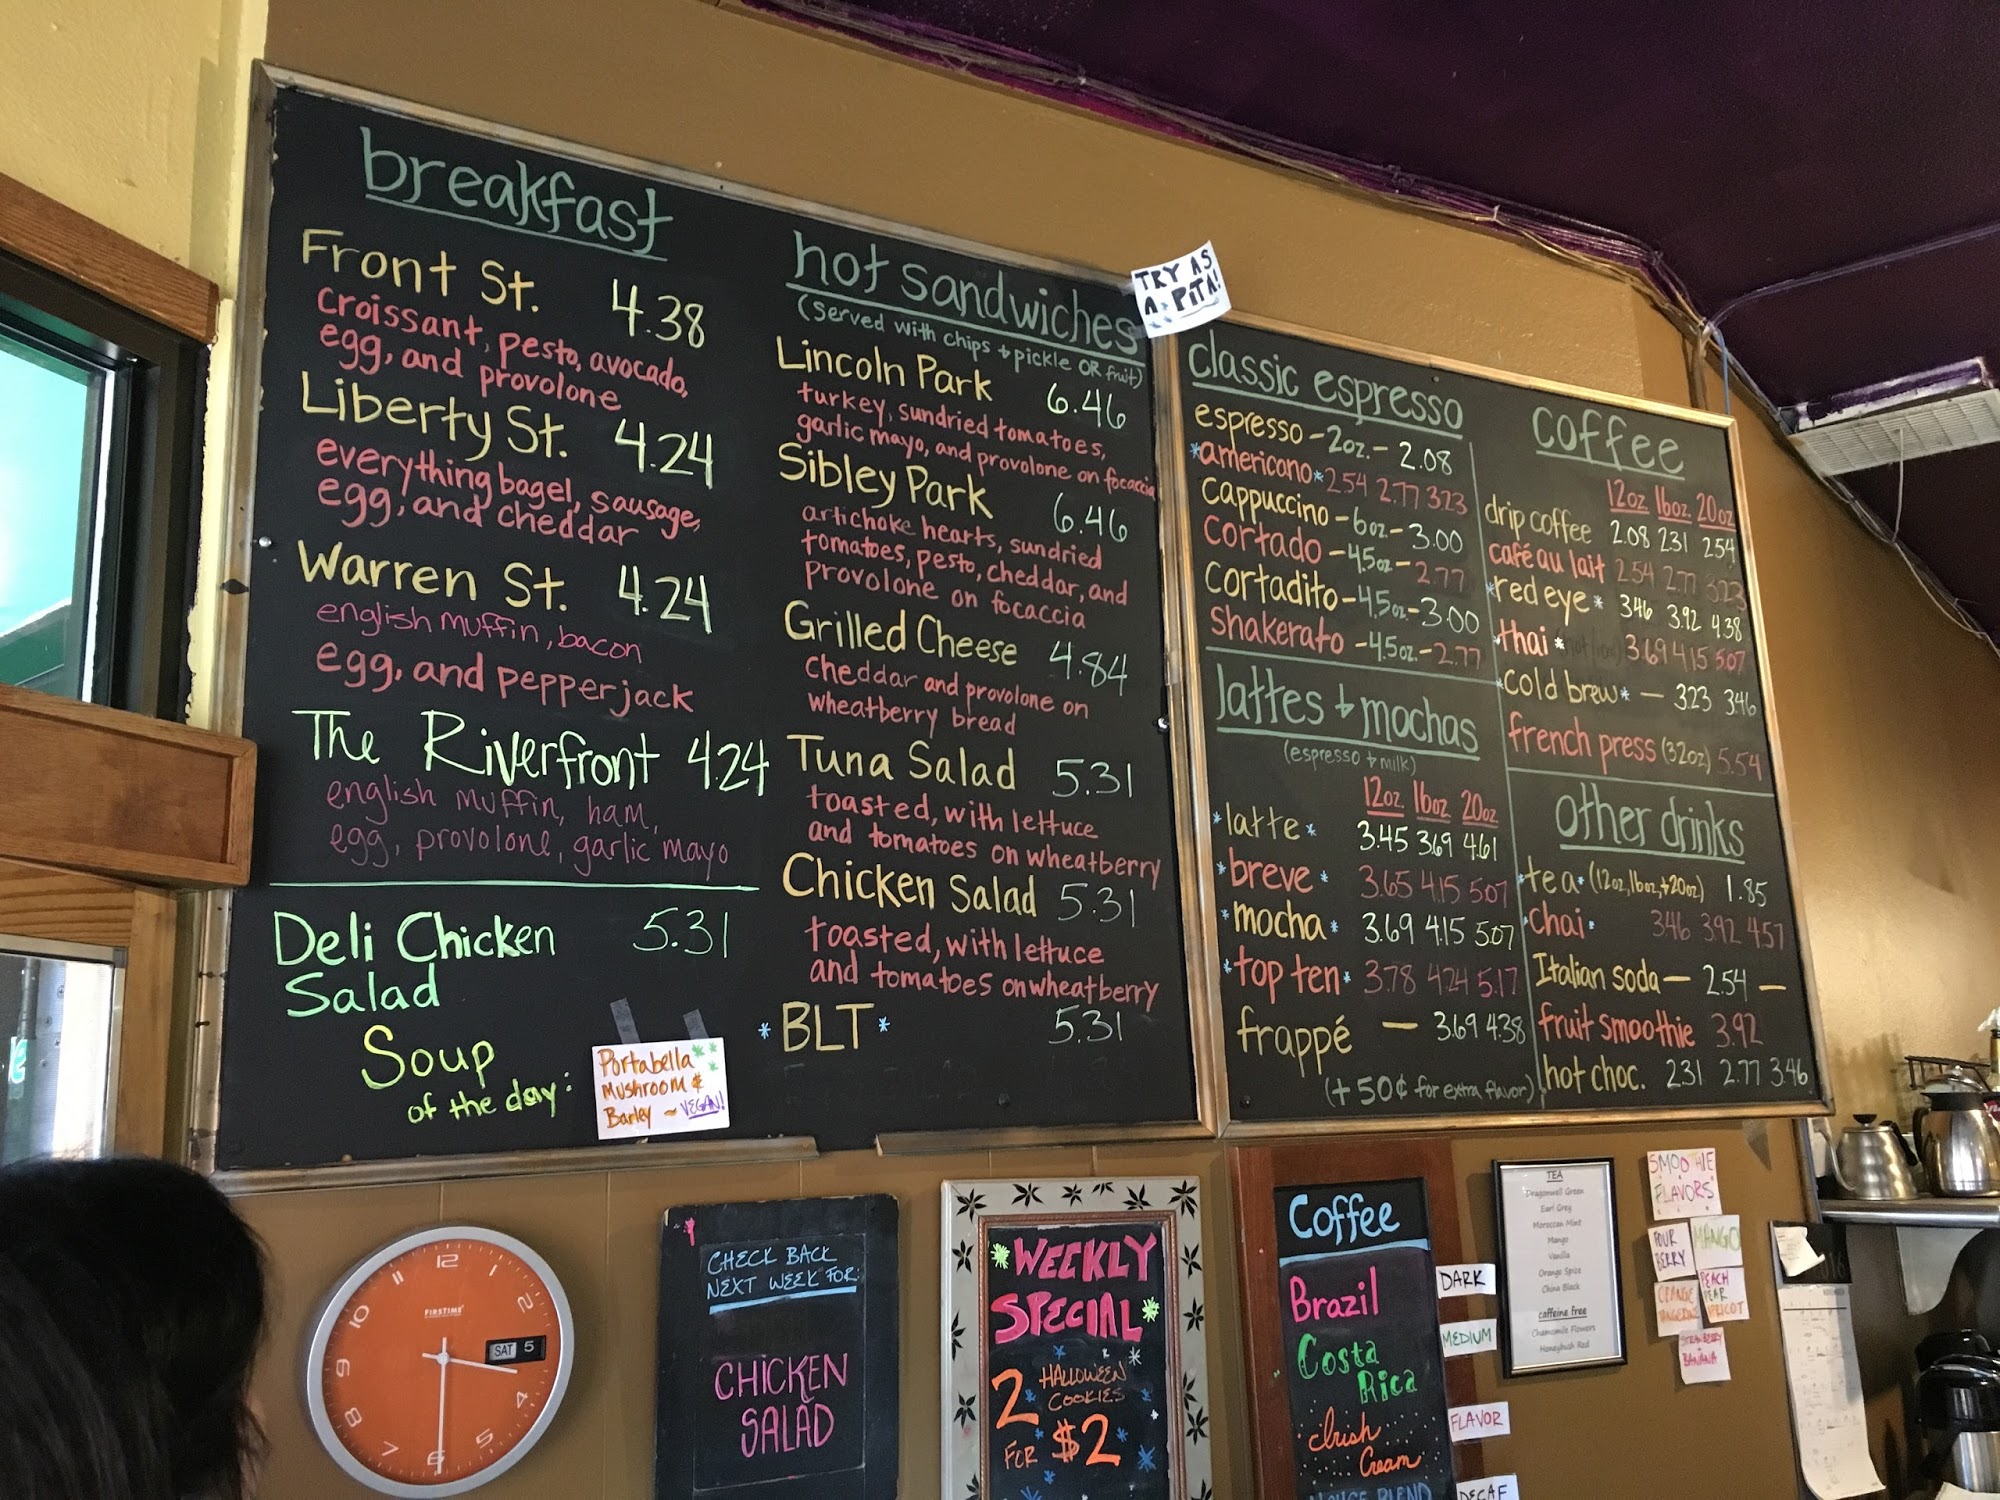 breakfast
Front St. 4.38
croissant, pesto, avocado,
egg, and provolone
Liberty St. 4.24
everything bagel, sausage,
egg, and cheddar
Warren St. 4.24
english muffin, bacon
egg, and pepperjack
The Riverfront 4.24
english muffin, ham,
egg, provolone, garlic mayo
Deli Chicken 5.31
Salad
Soup
of the day:
Portabella
Mushroom &
Barley ~ VEGAN!
hot sandwiches
(served with chips + pickle OR fruit)
Lincoln Park 6.46
turkey, sundried tomatoes,
garlic mayo, and provolone on focaccia
Sibley Park 6.46
artichoke hearts, sundried
tomatoes, pesto, cheddar, and
provolone on focaccia
Grilled Cheese 4.84
cheddar and provolone on
wheatberry bread
Tuna Salad 5.31
toasted, with lettuce
and tomatoes on wheatberry
Chicken Salad 5.31
toasted, with lettuce
and tomatoes on wheatberry
*BLT* 5.31
TRY AS
A PITA!
classic espresso
espresso - 2oz. - 2.08
*americano* 2.54 2.77 3.23
cappuccino - 6oz - 3.00
cortado - 4.5oz - 2.77
cortadito - 4.5oz - 3.00
shakerato - 4.5oz. - 2.77
lattes + mochas
(espresso + milk)
12oz. 16oz. 20oz
*latte* 3.45 3.69 4.61
*breve* 3.65 4.15 5.07
*mocha* 3.69 4.15 5.07
*top ten* 3.78 4.24 5.17
frappé — 3.69 4.38
(+ 50¢ for extra flavor)
coffee
12oz 16oz. 20oz
drip coffee 2.08 2.31 2.54
café au lait 2.54 2.77 3.23
*red eye* 3.46 3.92 4.38
*thai* 3.69 4.15 5.07
*cold brew* — 3.23 3.46
french press (32oz) 5.54
other drinks
*tea* (12oz, 16oz, + 20oz) 1.85
*chai* 3.46 3.92 4.57
Italian soda — 2.54 —
fruit smoothie 3.92
hot choc. 2.31 2.77 3.46
12
1
2
4
5
6
7
8
9
10
11
FIRSTIME
SAT 5
CHECK BACK
NEXT WEEK FOR:
CHICKEN
SALAD
*WEEKLY
SPECIAL*
2 HALLOWEEN
COOKIES
FOR $2
Coffee
Brazil
Costa
Rica
Irish
Cream
HOUSE BLEND
DARK
MEDIUM
FLAVOR
DECAF
TEA
Dragonwell Green
Earl Grey
Moroccan Mint
Mango
Vanilla
Orange Spice
China Black
caffeine free
Chamomile Flowers
Honeybush Red
SMOOTHIE
FLAVORS
FOUR
BERRY
MANGO
ORANGE
TANGERINE
PEACH
PEAR
APRICOT
STRAWBERRY
BANANA